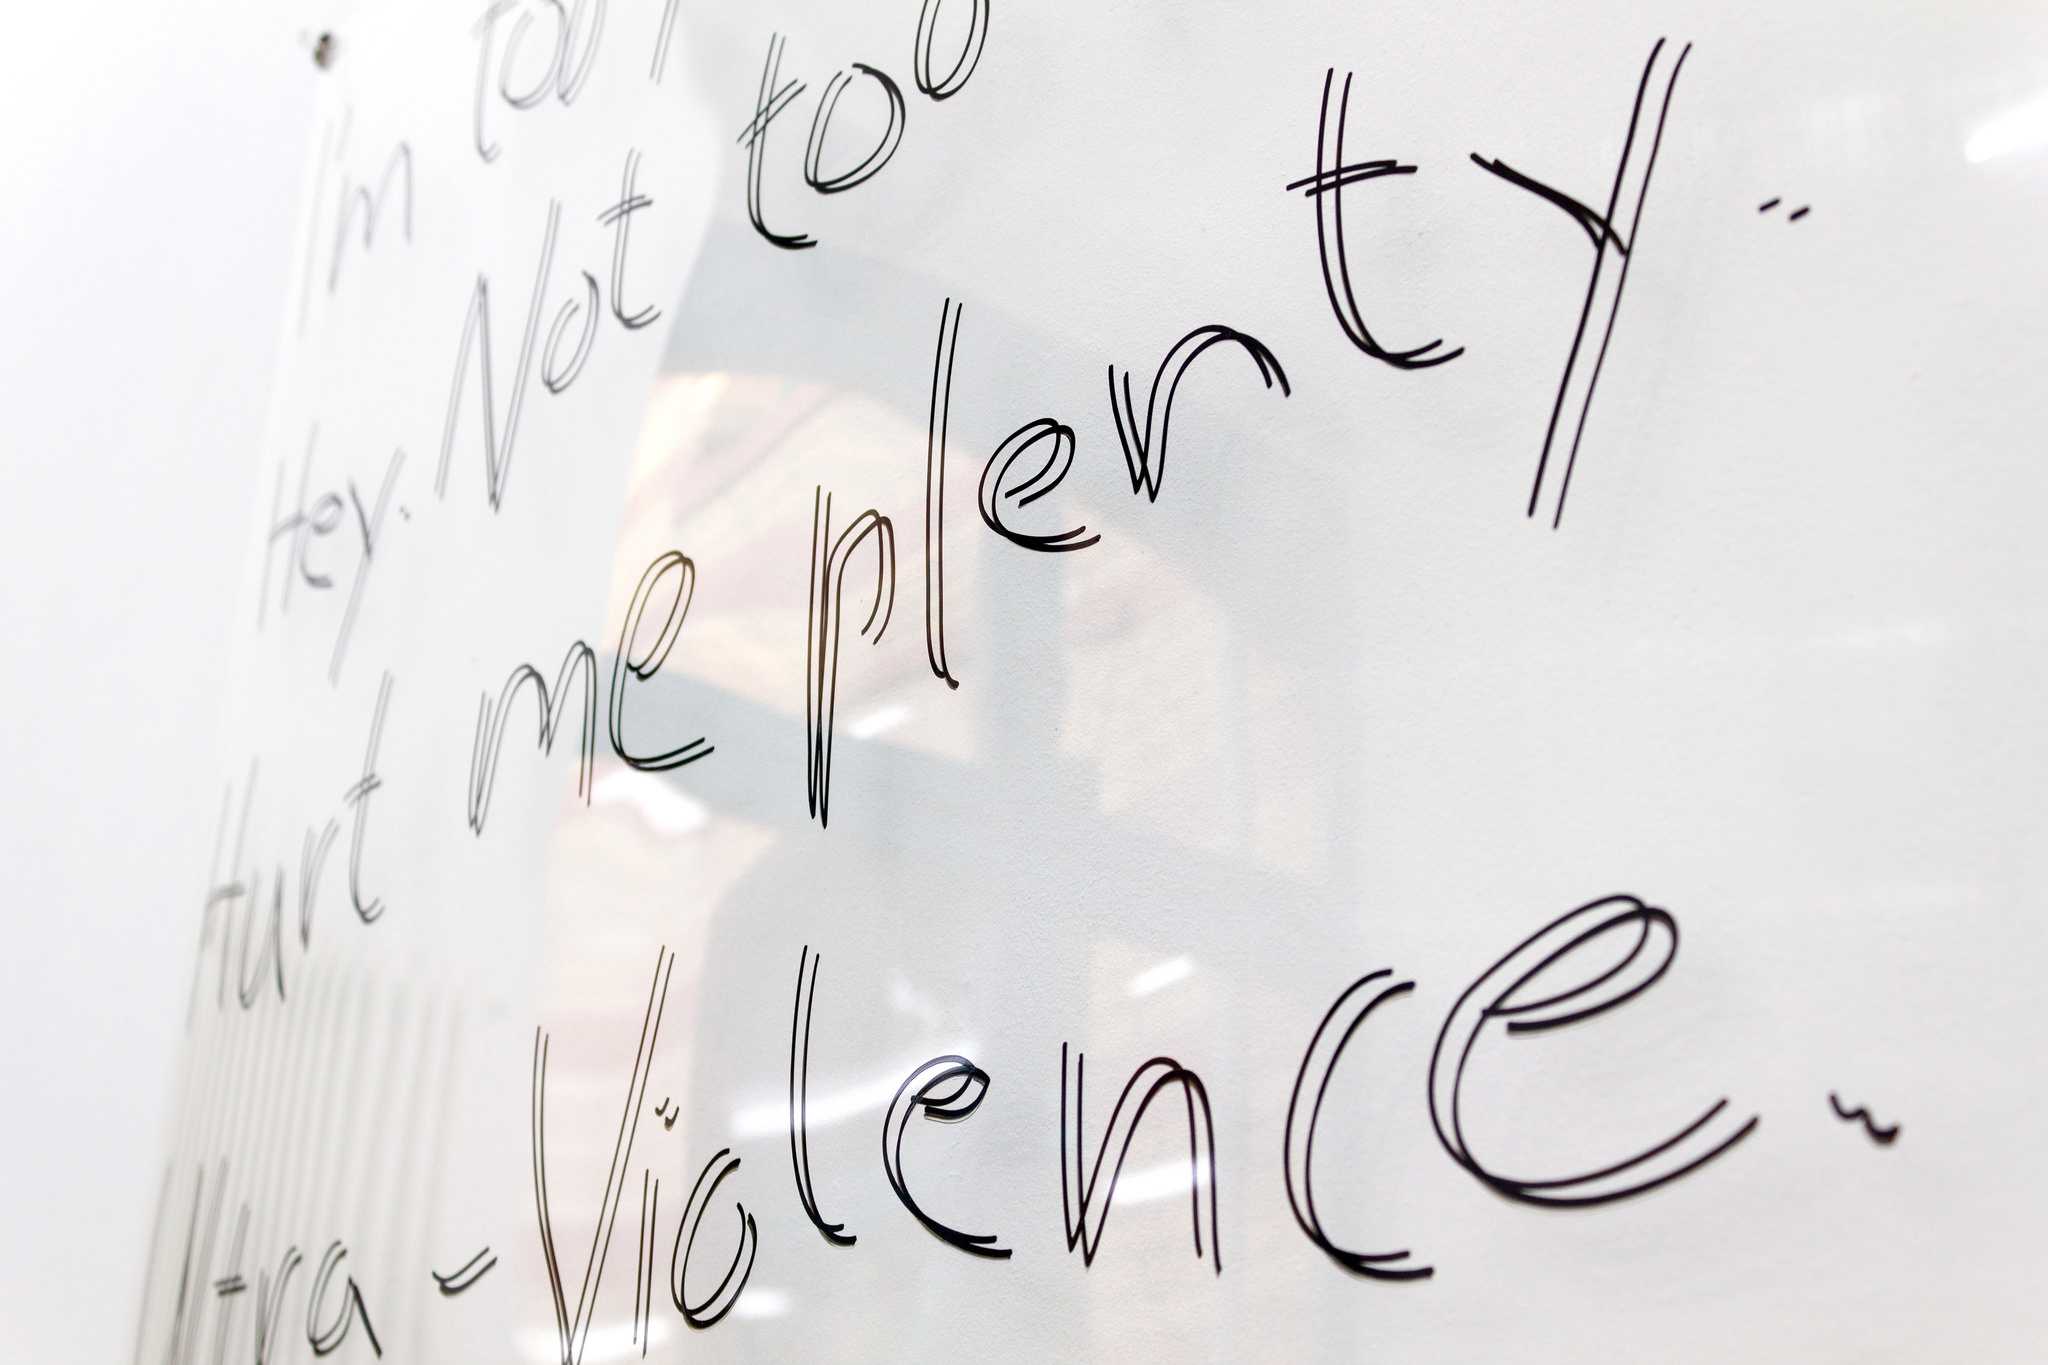 I'm too
Hey. Not too
Hurt me plenty.
ltra-Violence.